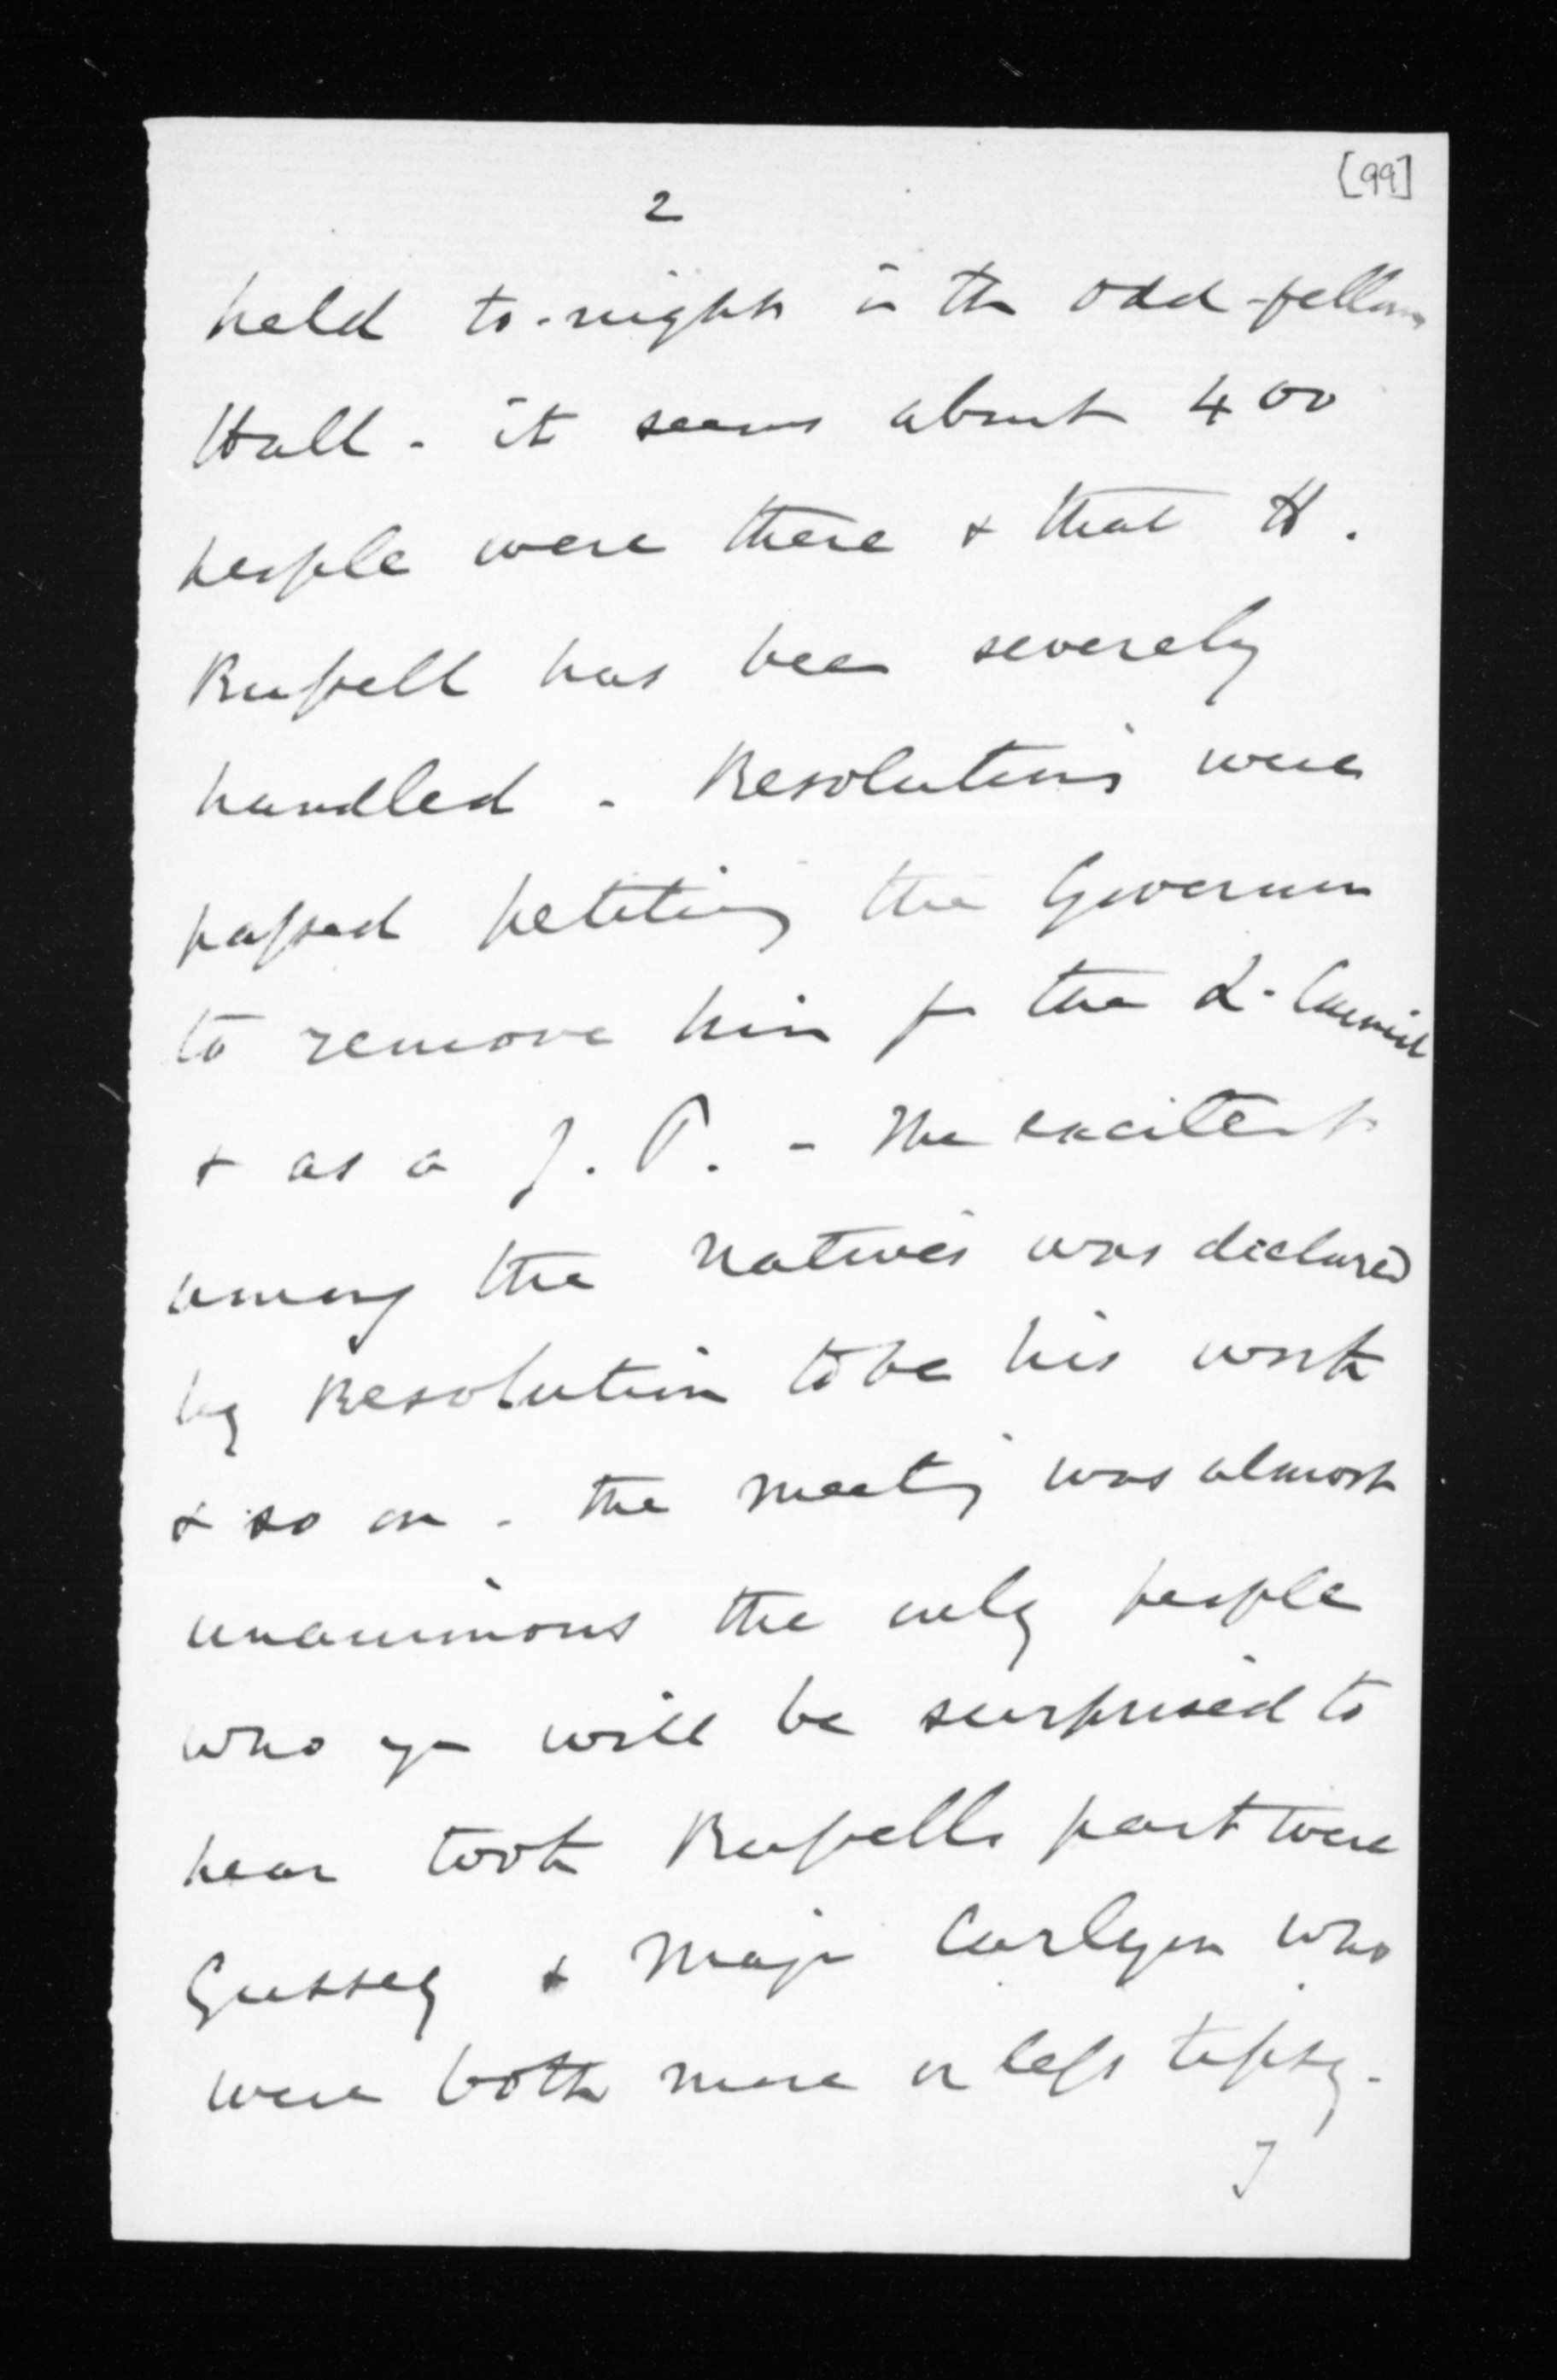 [99]
2
held to-night in the Odd-fellows
Hall - it seems about 400
people were there & that H.
Russell has been severely
handled - Resolutions were
passed petitioning the Governor
to remove him fr the L. Council
& as a J. P. - The excitemt
among the natives was declared
by Resolution to be his work
& so on - the meeting was almost
unanimous the only people
who you will be surprised to
hear took Russells part were
& Major Carlyon who
were both more or less tipsy -